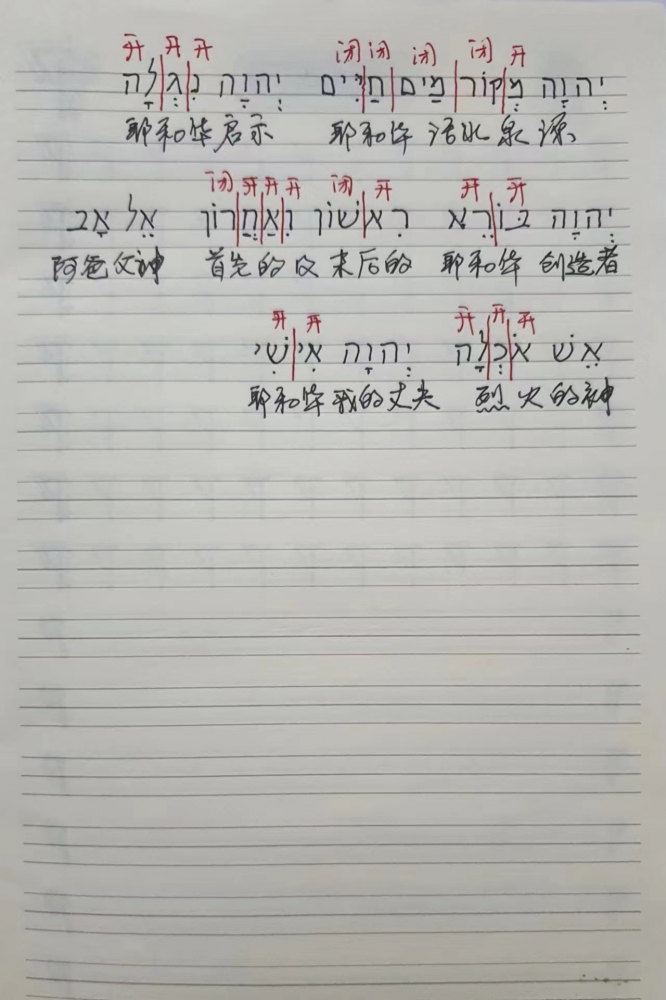 开 开 开 闭 闭 闭 闭 开
יְהוָה מְקוֹר מַיִם חַיִּים יְהוָה נִגְלָה
耶和华启示 耶和华 活水泉源
闭 开 开 开 闭 开 开 开
יְהוָה בּוֹרֵא רִאשׁוֹן וְאַחֲרוֹן אֵל אָב
阿爸父神 首先的及末后的 耶和华 创造者
开 开 开 开 开
אֵשׁ אֹכְלָה יְהוָה אִישִׁי
耶和华我的丈夫 烈火的神